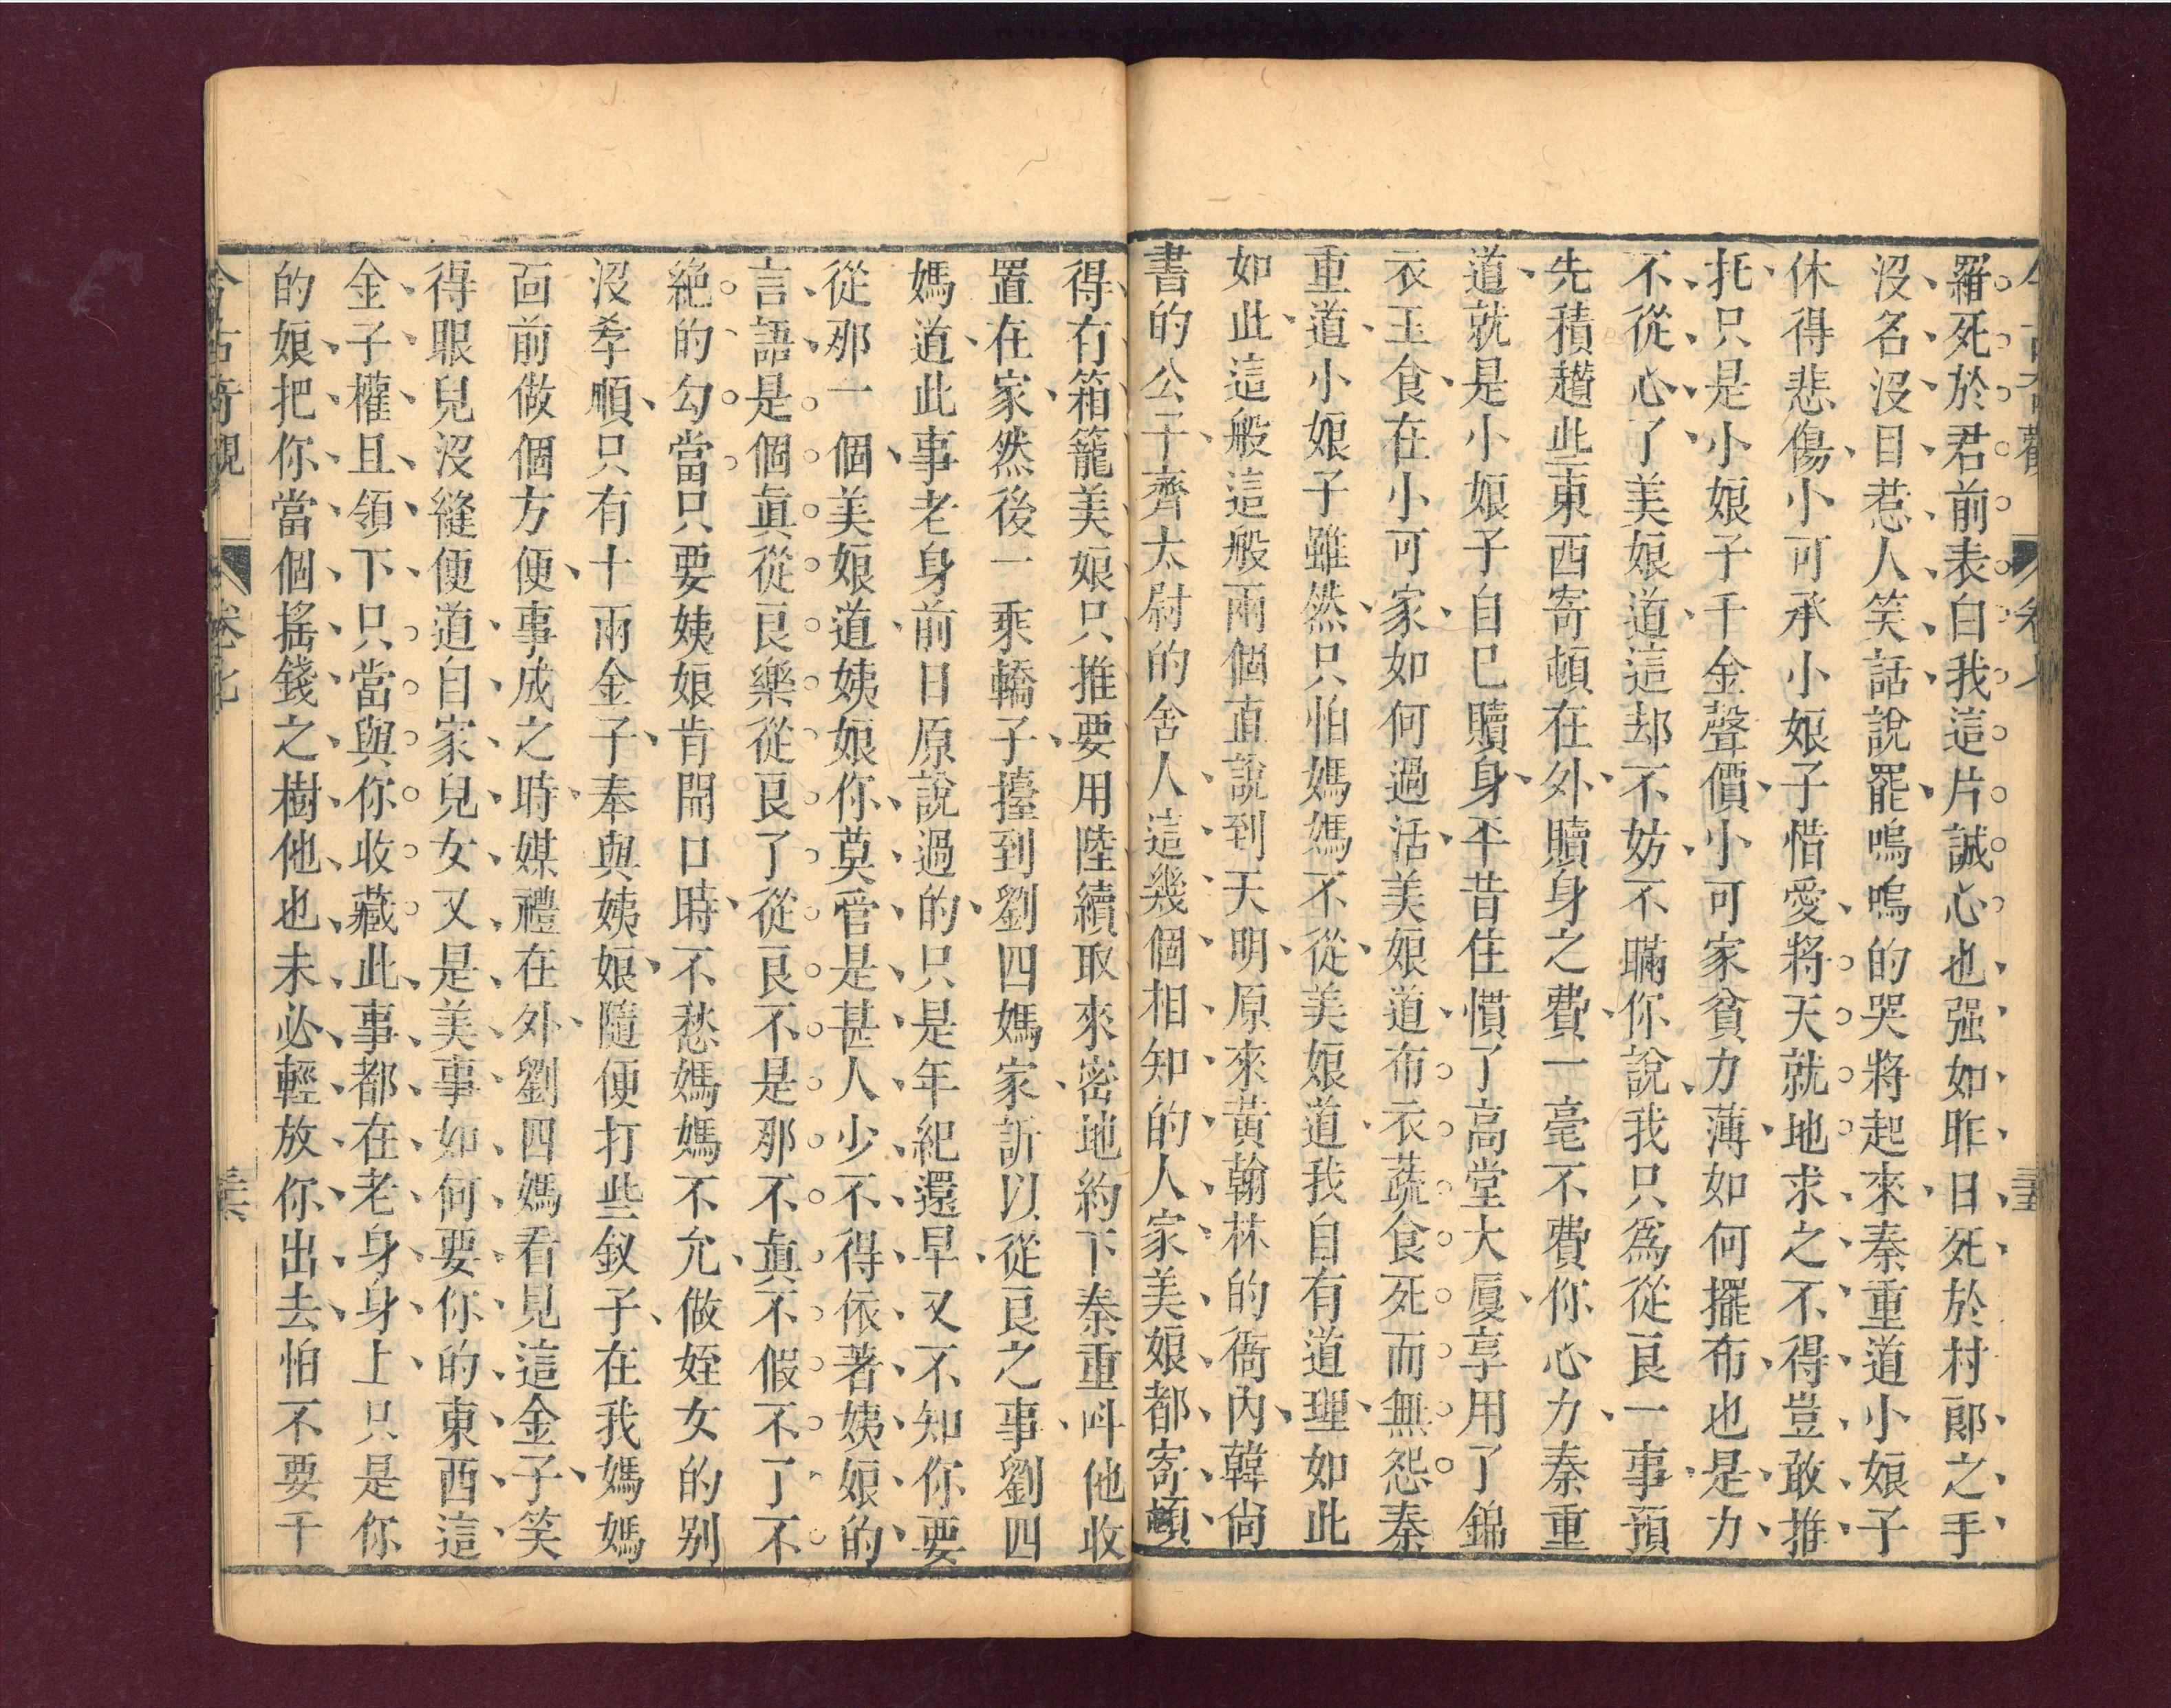 羅死於君前表白我這片誠心也强如昨日死於村郎之手
沒名沒目惹人笑話說罷嗚嗚的哭將起來秦重道小娘子
休得悲傷小可承小娘子惜愛將天就地求之不得豈敢推
托只是小娘子千金聲價小可家貧力薄如何擺布也是力
不從心了美娘道這却不妨不瞞你說我只爲從良一事預
先積趲些東西寄頓在外贖身之費一毫不費你心力秦重
道就是小娘子自巳贖身平昔住慣了高堂大廈享用了錦
衣玉食在小可家如何過活美娘道布衣蔬食死而無怨秦
重道小娘子雖然只怕媽媽不從美娘道我自有道理如此
如此這般這般兩個直說到天明原來黃翰林的衙內韓尙
書的公子齊太尉的舍人這幾個相知的人家美娘都寄頓
得有箱籠美娘只推要用陸續取來密地約下秦重呌他收
置在家然後一乘轎子擡到劉四媽家訴以從良之事劉四
媽道此事老身前日原說過的只是年紀還早又不知你要
從那一個美娘道姨娘你莫管是甚人少不得依著姨娘的
言語是個眞從良樂從良了從良不是那不眞不假不了不
絶的勾當只要姨娘肯開口時不愁媽媽不允做姪女的别
沒孝順只有十兩金子奉與姨娘隨便打些釵子在我媽媽
面前做個方便事成之時媒禮在外劉四媽看見這金子笑
得眼兒沒縫便道自家兒女又是美事如何要你的東西這
金子權且領下只當與你收藏此事都在老身身上只是你
的娘把你當個搖錢之樹他也未必輕放你出去怕不要千
今古奇觀 卷七 三六